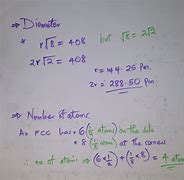 ⇒ Diameter
* r√8 = 408 but √8 = 2√2
2r√2 = 408
r = 144.25 Pm
2r = 288.50 Pm
⇒ Number of atoms
An FCC has 6 (½ atom) on the side
8 (⅛ atom) at the corners
∴ no of atoms ⇒ (6 × ½) + (⅛ × 8) = 4 atoms